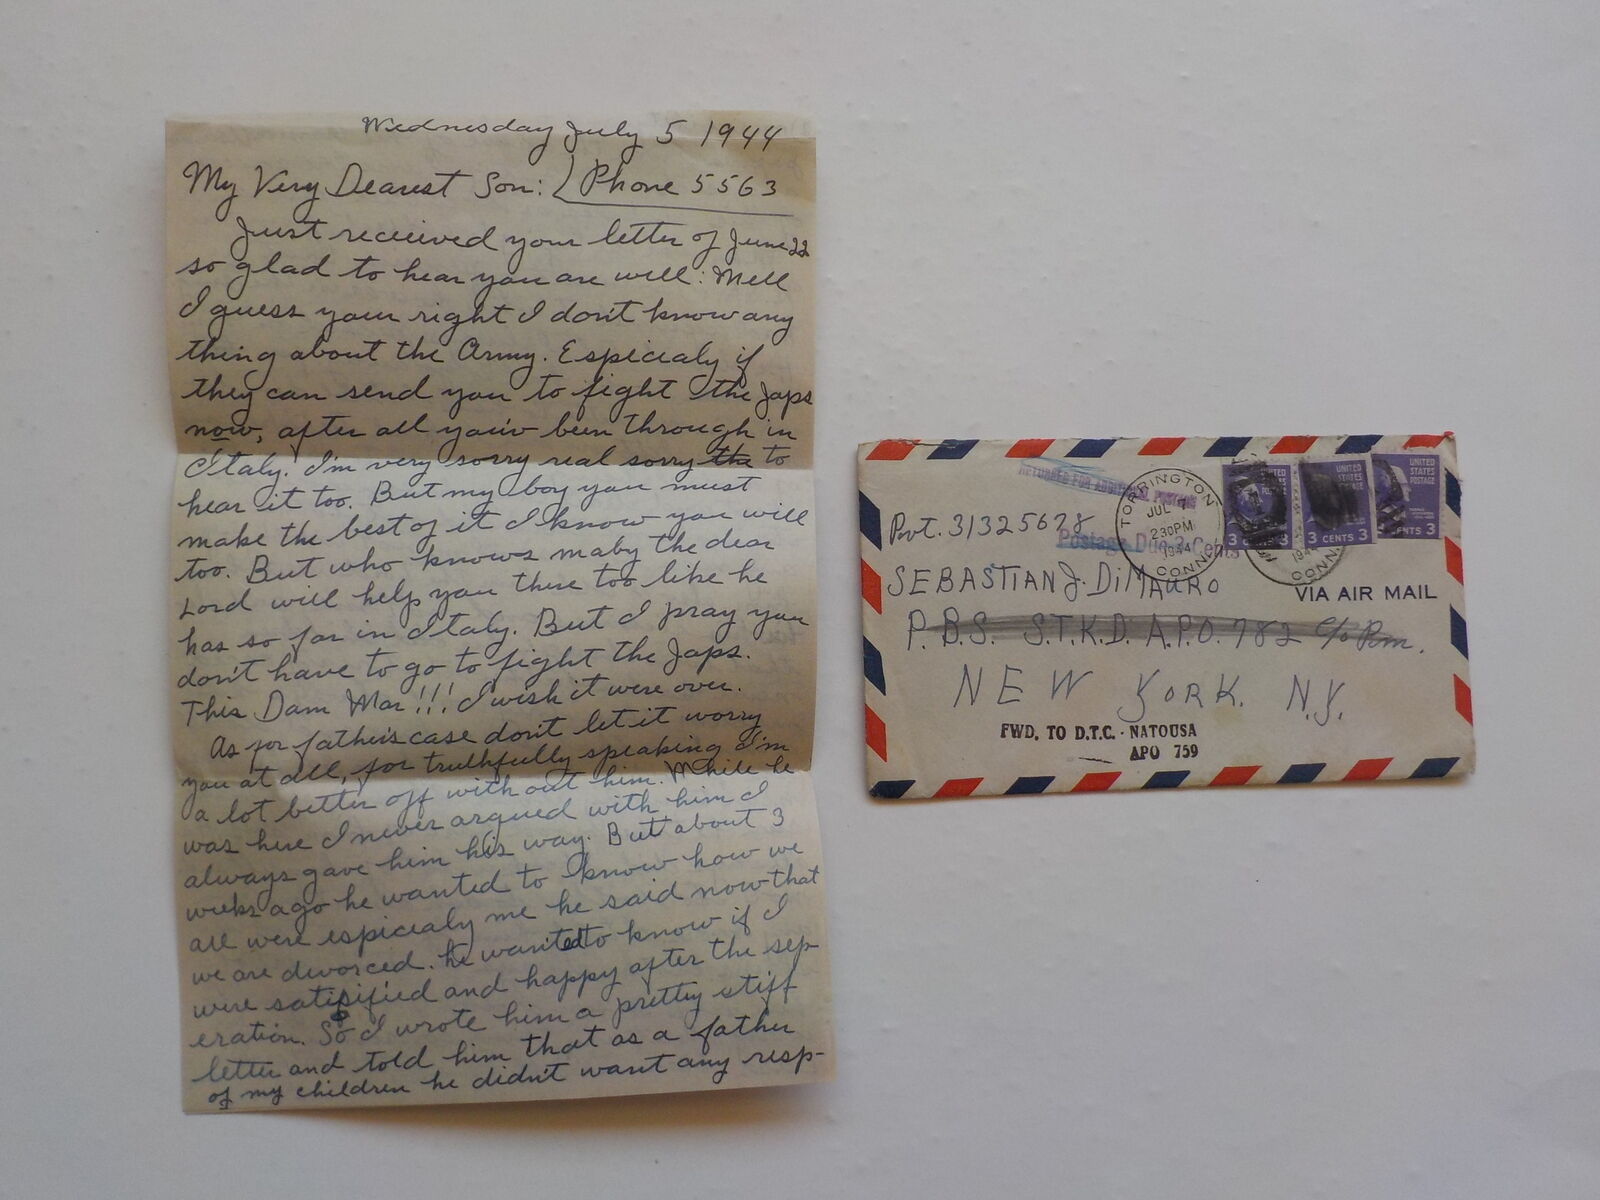 Wednesday July 5 1944
My Very Dearest Son: Phone 5563
Just received your letter of June 22
so glad to hear you are well: Well
I guess your right I don't know any
thing about the Army. Espicialy if
they can send you to fight the Japs
now, after all you'v been through in
Italy. I'm very sorry real sorry the to
hear it too. But my boy you must
make the best of it I know you will
too. But who knows maby the dear
Lord will help you there too like he
has so far in Italy. But I pray you
don't have to go to fight the Japs.
This Dam War!!! I wish it were over.
As for father's case don't let it worry
you at all, for truthfully speaking I'm
a lot better off with out him. While he
was here I never argued with him I
always gave him his way. But about 3
weeks ago he wanted to know how we
all were espicialy me he said now that
we are divorced. he wanted to know if I
were satisfified and happy after the sep-
eration. So I wrote him a pretty stiff
letter and told him that as a father
of my children he didn't want any resp-
RETURNED FOR ADDITIONAL POSTAGE
Postage Due 3 Cents
TORRINGTON
JUL 7
230PM
1944
CONN.
UNITED STATES POSTAGE
3 CENTS 3
UNITED STATES POSTAGE
3 CENTS 3
UNITED STATES POSTAGE
CENTS 3
194
CONN.
Pvt. 31325678
SEBASTIAN J. DiMAURO
VIA AIR MAIL
P.B.S. S.T.K.D. A.P.O. 782 c/o Pm.
NEW YORK. N.Y.
FWD. TO D.T.C. - NATOUSA
APO 759